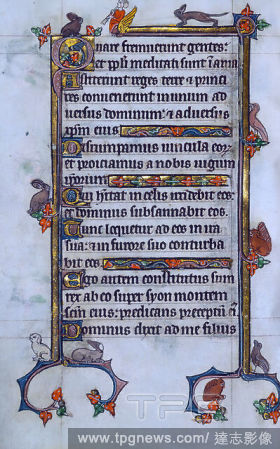 Quare fremuerunt gentes:
et ppli meditati sunt īania
Astiterunt reges terre et princi
pes convenerunt in unum ad
versus dominum: et adversus
xpm eius.
Disrumpamus vincula eor̄
et proiciamus a nobis iugum
ipsorum.
Qui habitat in celis irridebit eos:
et dominus subsannabit eos.
Tunc loquetur ad eos in ira
sua: et in furore suo conturba
bit eos.
Ego autem constitutus sum
rex ab eo super syon montem
scm̄ eius: predicans preceptū eī
Dominus dixit ad me filius
TPG
www.tpgnews.com/ 達志影像